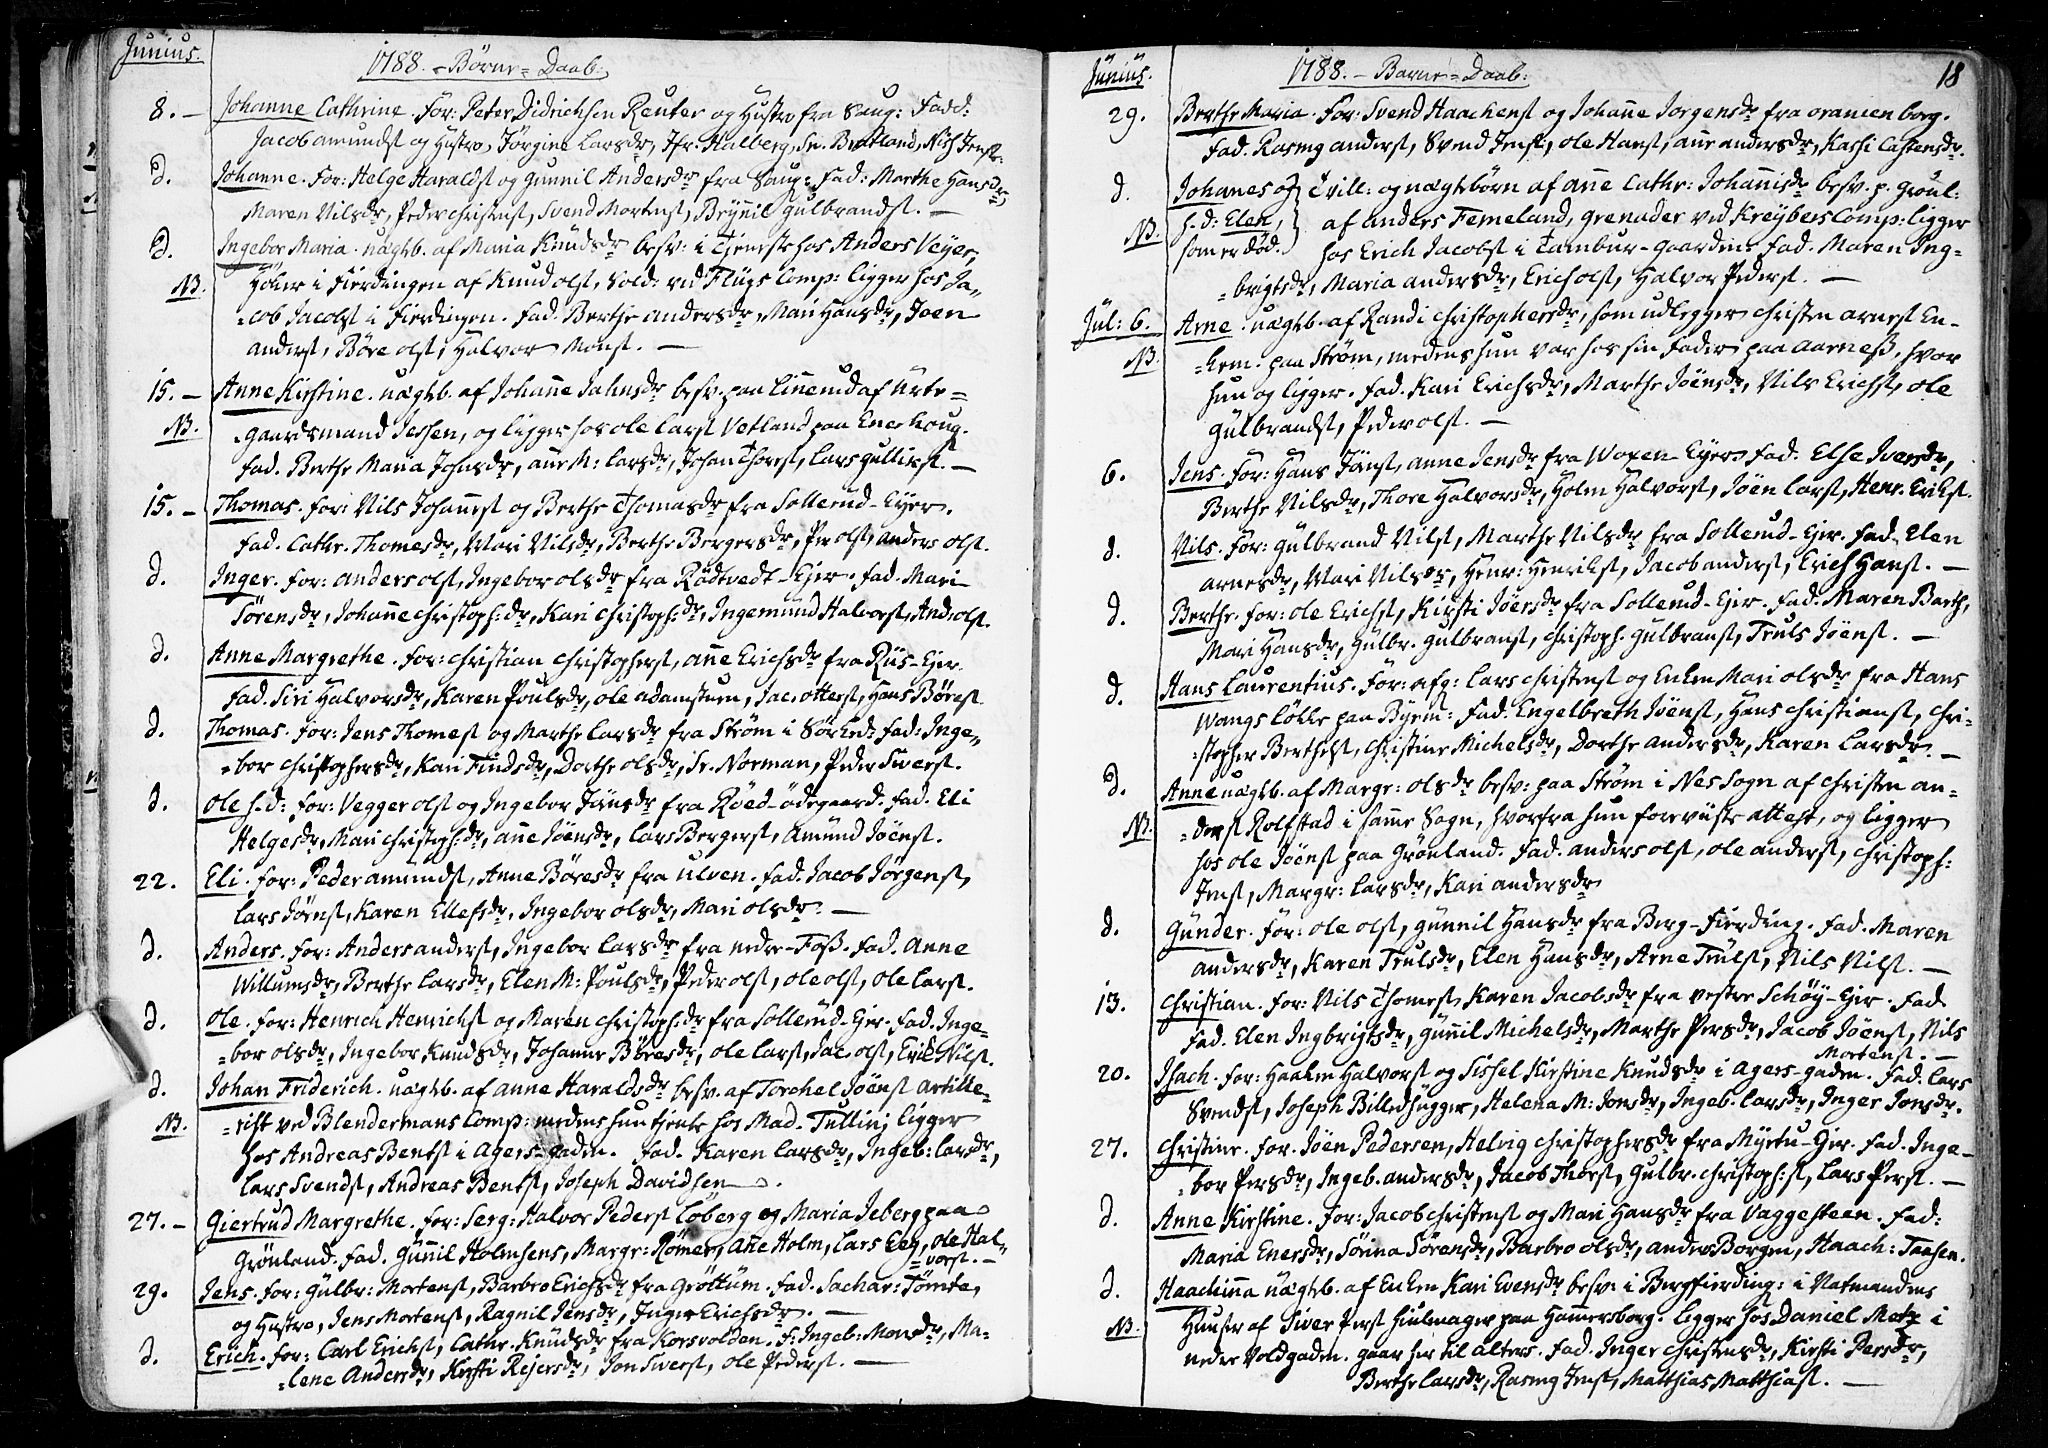 Junius.
1788. - Børne-Daab.
8. - Johanne Cathrine. For: Peter Didrichsen Reuter og Hustro fra Saug: Fadd:
Jacob amundsø og Hustro, Jørgine Larsdr, Jfr: Halberg, Sr. Brotland, Nils Jens:
d. Johanne. For: Helge Haraldsø og Gunnil Andersdr fra Saug: Fad: Marthe Hansdr,
Maren Nilsdr, Peder Christensø, Svend Mortensø, Brynnil Gulbrandsø. -
d. Ingebor Maria. uægtb. af Maria Knudsdr besv: i Tjeneste hos Anders Veyer,
NB. Høker i Fierdingen af Knud olsø, Sold: ved Flugs Comp: ligger hos Ja-
cob Jacobsø i Fierdingen. Fad. Berthe andersdr, Mari Hansdr, Joen
andersø, Børe olsø, Halvor Monsø. -
15. - Anne Kirstine. uægtb. af Johanne Jahnsdr besv. paa Linnerud af Urte-
NB. gaardsmand Jessen, og ligger hos ole larsø Vetland paa Enerhoug.
Fad. Berthe Maria Johnsdr, anne M: larsdr, Johan Thoresø, Lars gulliksø. -
15. - Thomas. For: Nils Johannesø og Berthe Thomasdr fra Sollerud-Eyer.
Fad. Cathr. Thomesdr, Mari Nilsdr, Berthe Bergersdr, Per olsø, anders olsø.
d. Inger. For: anders olsø, Ingebor olsdr fra Rødtvedt-Ejer. Fad. Mari
Sørensdr, Johanne Christoph:dr, Kari Christoph:dr, Ingemund Halvorsø, And: olsø.
d. Anne Margrethe. For: Christian Christophersø, anne Erichsdr fra Riis-Ejer.
Fad. Siri Halvorsdr, Karen Poulsdr, ole adamstuen, Jac. ottersø, Hans Børesø.
d. Thomas. For: Jens Thomesø og Marthe larsdr fra Strøm i Sørked: Fad: Inge-
bor Christophersdr, Kari Findsdr, Dorthe olsdr, Sr. Norman, Peder Siversø.
d. ole h.d: For: Vegger olsø og Ingebor Jansdr fra Røed-ødegaard. Fad. Eli
Helgesdr, Mari Christoph:dr, anne Jøensdr, Lars Bergersø, Amund Jøensø.
22. Eli. For: Peder amundsø, Anne Børesdr fra ulven. Fad. Jacob Jørgensø,
Lars Jørnsø, Karen Ellefsdr, Ingebor olsdr, Mari olsdr. -
d. Anders. For: Anders andersø, Ingebor larsdr fra nedre-Foss. Fad. Anne
Willumsdr, Berthe larsdr, Elen M: Poulsdr, Peder olsø, ole olsø, ole larsø.
d. ole. For: Henrich Henrichsø og Maren Christoph:dr fra Sollerud-Ejer. Fad. Inge-
bor olsdr, Ingebor Knudsdr, Johanne Børesdr, ole larsø, Jac. olsø, Erik Nilsø.
d. Johan Friderich. uægtb. af anne Haraldsdr besv. af Torchel Jøensø artille-
NB. rist ved Blendermans Comp: medens hun tjente hos Mad. Tullin; ligger
hos Andreas Bentsø i Agers-gaden. Fad. Karen Larsdr, Ingeb: larsdr,
Lars Svendsø, Andreas Bentsø, Joseph Davidsen.
27. - Giertrud Margrethe. For: Serg: Halvor Pedersø Løberg og Maria Jeberg paa
Grønland. Fad. Gunnil Holmsens, Margr: Rømer, Anne Holm, Lars Eeg, ole Hal-
vorsø. -
29. Jens. For: Gulbr: Mortensø, Barbro Erichsdr fra Grøttum. Fad. Sachar: Tømte,
og Hustro, Jens Mortensø, Ragnil Jensdr, Inger Erichsdr. -
d. Erich. For: Carl Erichsø, Cathr. Knudsdr fra Korsvolden. F: Ingeb: Monsdr, Ma-
lene Andersdr, Kirsti Rejersdr, Jon Siversø, ole Pedersø. -
Junius.
1788. - Barne-Daab.
18
29. Berthe Maria. For: Svend Haachensø og Johanne Jørgensdr fra oranienborg.
Fad. Rasmg andersø, Svend Jensø, ole Hansø, anne andersdr, Kassi Castensdr.
d. Johanes og } Tvill: og uægtebørn af anne Cathr: Johannisdr besv. p. Grønl:
NB. h.d: Elen, } af anders Femeland, grenader ved Kreybers Comp: ligger
som er død. } hos Erich Jacobsø i Tambur-gaarden. Fad. Maren Ing-
brigtsdr, Maria andersdr, Erich olsø, Halvor Pedersø. -
Jul: 6. Arne. uægtb. af Randi Christophersdr, som udlegger Christen arnesø En-
NB. kem. paa Strøm, medens hun var hos sin Fader paa aarness, hvor
hun og ligger. Fad. Kari Erichsdr, Marthe Jøensdr, Nils Erichsø, ole
Gulbrandsø, Peder olsø. -
6. Jens. For: Hans Jansø, anne Jensdr fra Woxen-Eyer. Fad. Else Iversdr,
Berthe Nilsdr, Thore Halvorsdr, Holm Halvorsø, Jøen larsø, Henr. Eriksø.
d. Nils. For: Gulbrand Nilsø, Marthe Nilsdr fra Sollerud-Ejer. Fad. Elen
arnesdr, Mari Nilsdr, Henr: Henriksø, Jacob andersø, Erich Hansø. -
d. Berthe. For: ole Erichsø, Kirsti Jøensdr fra Sollerud-Ejer. Fad. Maren Barth,
Mari Hansdr, Gulbr. Gulbransø, Christoph. Gulbransø, Truls Jøensø. -
d. Hans Laurentius. For: afg: Lars Christensø og Enken Mari olsdr fra Hans
Wangs løkke paa Bysm: Fad. Engelbreth Jøensø, Hans Christiansø, Chri-
stopher Berthelsø, Christine Michelsdr, Dorthe andersdr, Karen Larsdr. -
d. Anne uægtb. af Margr: olsdr besv: paa Strøm i Nes Sogn af Christen an-
NB. dersø Rolfstad i samme Sogn, hvorfra hun foreviiste attest, og ligger
hos ole Jøensø paa Grønland. Fad. anders olsø, ole andersø, Christoph:
Jensø, Margr: larsdr, Kari andersdr
d. Gunder. For: ole olsø, gunnil Hansdr fra Berg-Fierding. Fad. Maren
andersdr, Karen Trulsdr, Elen Hansdr, Arne Trulsø, Nils Nilsø. -
13. Christian. For: Nils Thomesø, Karen Jacobsdr fra vestre Schøy-Ejer. Fad.
Fad. Elen Ingbrigtsdr, Gunnil Michelsdr, Marthe Persdr, Jacob Jøensø, Nils
Mortensø. -
20. Isach. For: Haaken Halvorsø og Sissel Kirstine Knudsdr i Agers-gaden. Fad: Lars
Svendsø, Joseph Billedhugger, Helena M: Jonsdr, Ingeb. larsdr, Inger Jonsdr.
27. Christine. For. Jøen Pedersen, Helvig Christophersdr fra Myrtu-Ejer. Fad. Inge-
bor Persdr, Ingeb. andersdr, Jacob Thorsø, Gulbr. Christoph:sø, Lars Persø. -
d. Anne Kirstine. For: Jacob Christensø og Mari Hansdr fra Vaggesteen. Fad:
Maria Enersdr, Sørina Sørensdr, Barbro olsdr, anders Borgen, Haach: Taasen.
d. Haachinna uægtb. af Enken Kari Evensdr besv: i Bergfierding: i Natmandens
NB. Huuse af Siver Persø Hiulmager paa Hammersborg. ligger hos Daniel Motz i
nedre Voldgaden. gaar her til alters. Fad. Inger Christensdr, Kirsti Persdr,
Berthe Larsdr, Rasmg Jensø, Matthias Matthiasø. -